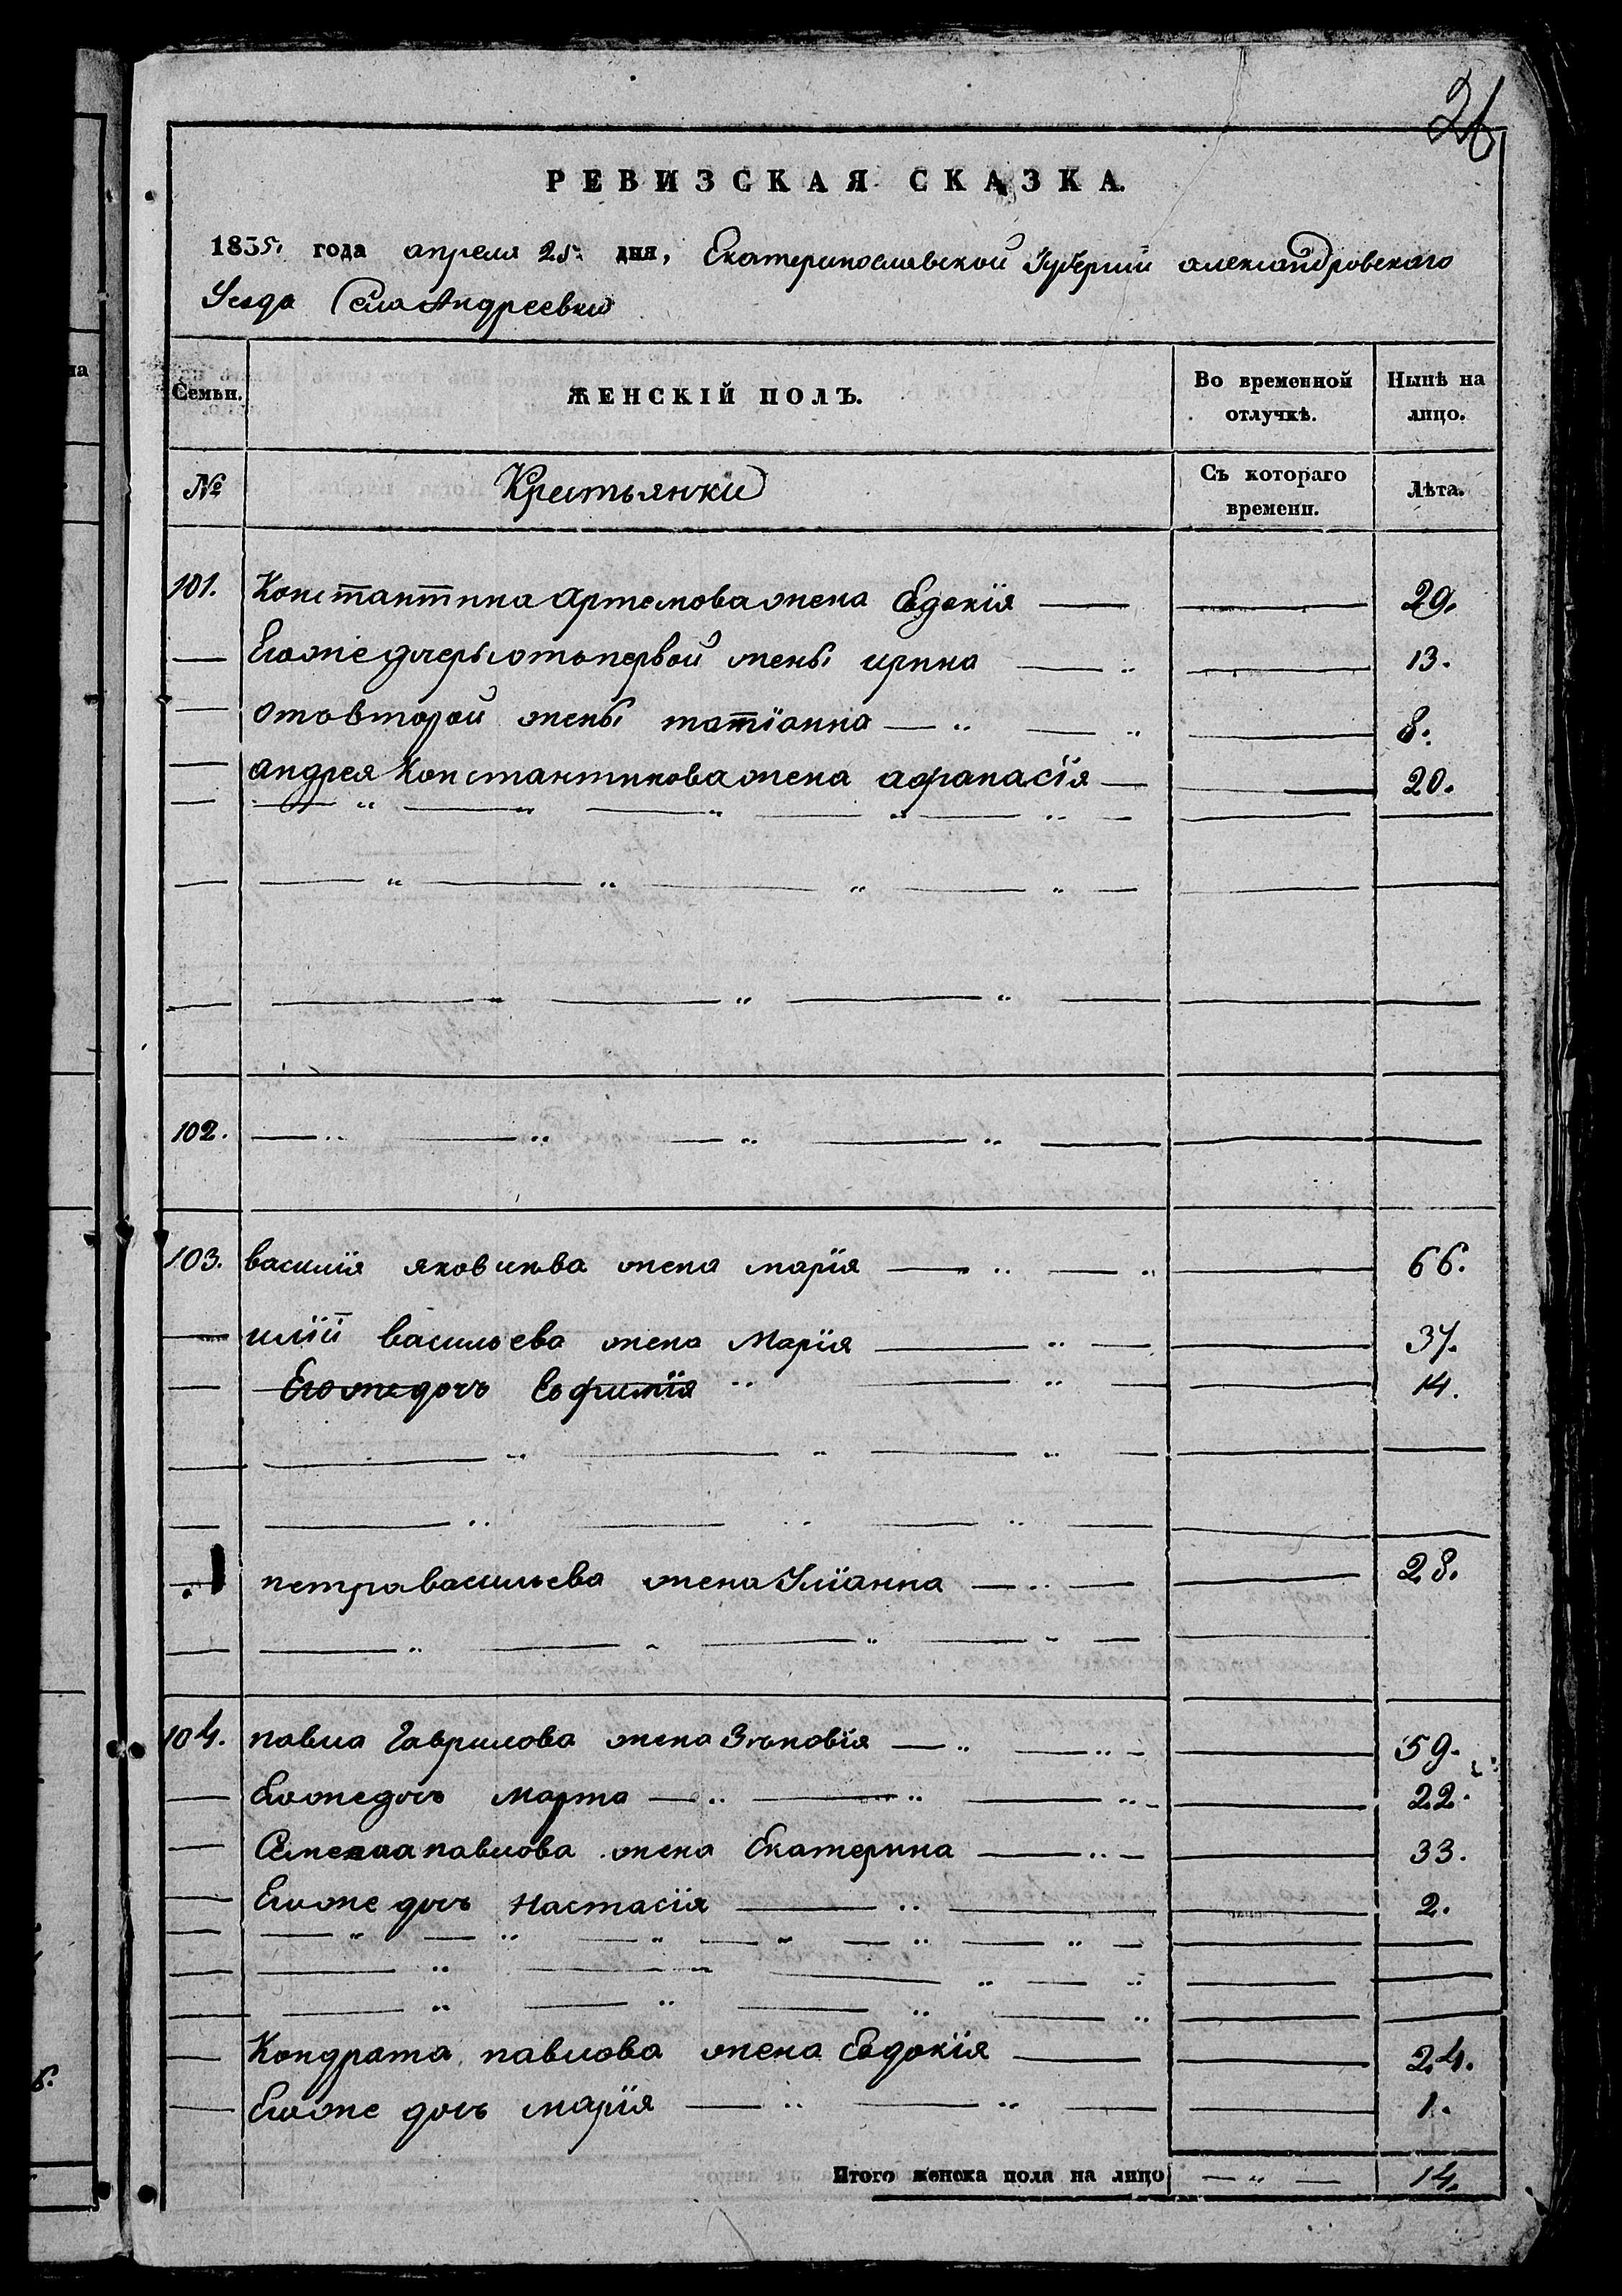 26
РЕВИЗСКАЯ СКАЗКА.
1835 года апреля 25 дня, Екатеринославской Губернии александровского
Уезда Села Андреевки
Семьи. ЖЕНСКІЙ ПОЛЪ. Во временной отлучкѣ. Нынѣ на лицо.
№ Крестьянки Съ котораго времени. Лѣта.
101. Константина Артемова жена Евдокія 29.
Егоже дочеры отъ первой жены ирина 13.
отъ второй жены татіанна 8.
андрея Константинова жена афанасія 20.
102.
103. василія яковлева жена марія 66.
иліи васильева жена Марія 37.
Егоже дочь Евфимія 14.
петра васильева жена Уліанна 28.
104. павла Гаврилова жена Зѣновія 59.
Егоже дочь Марта 22.
Семена павлова жена Екатерина 33.
Егоже дочь Настасія 2.
Кондрата павлова жена Евдокія 24.
Егоже дочь марія 1.
Итого женска пола на лицо 14.